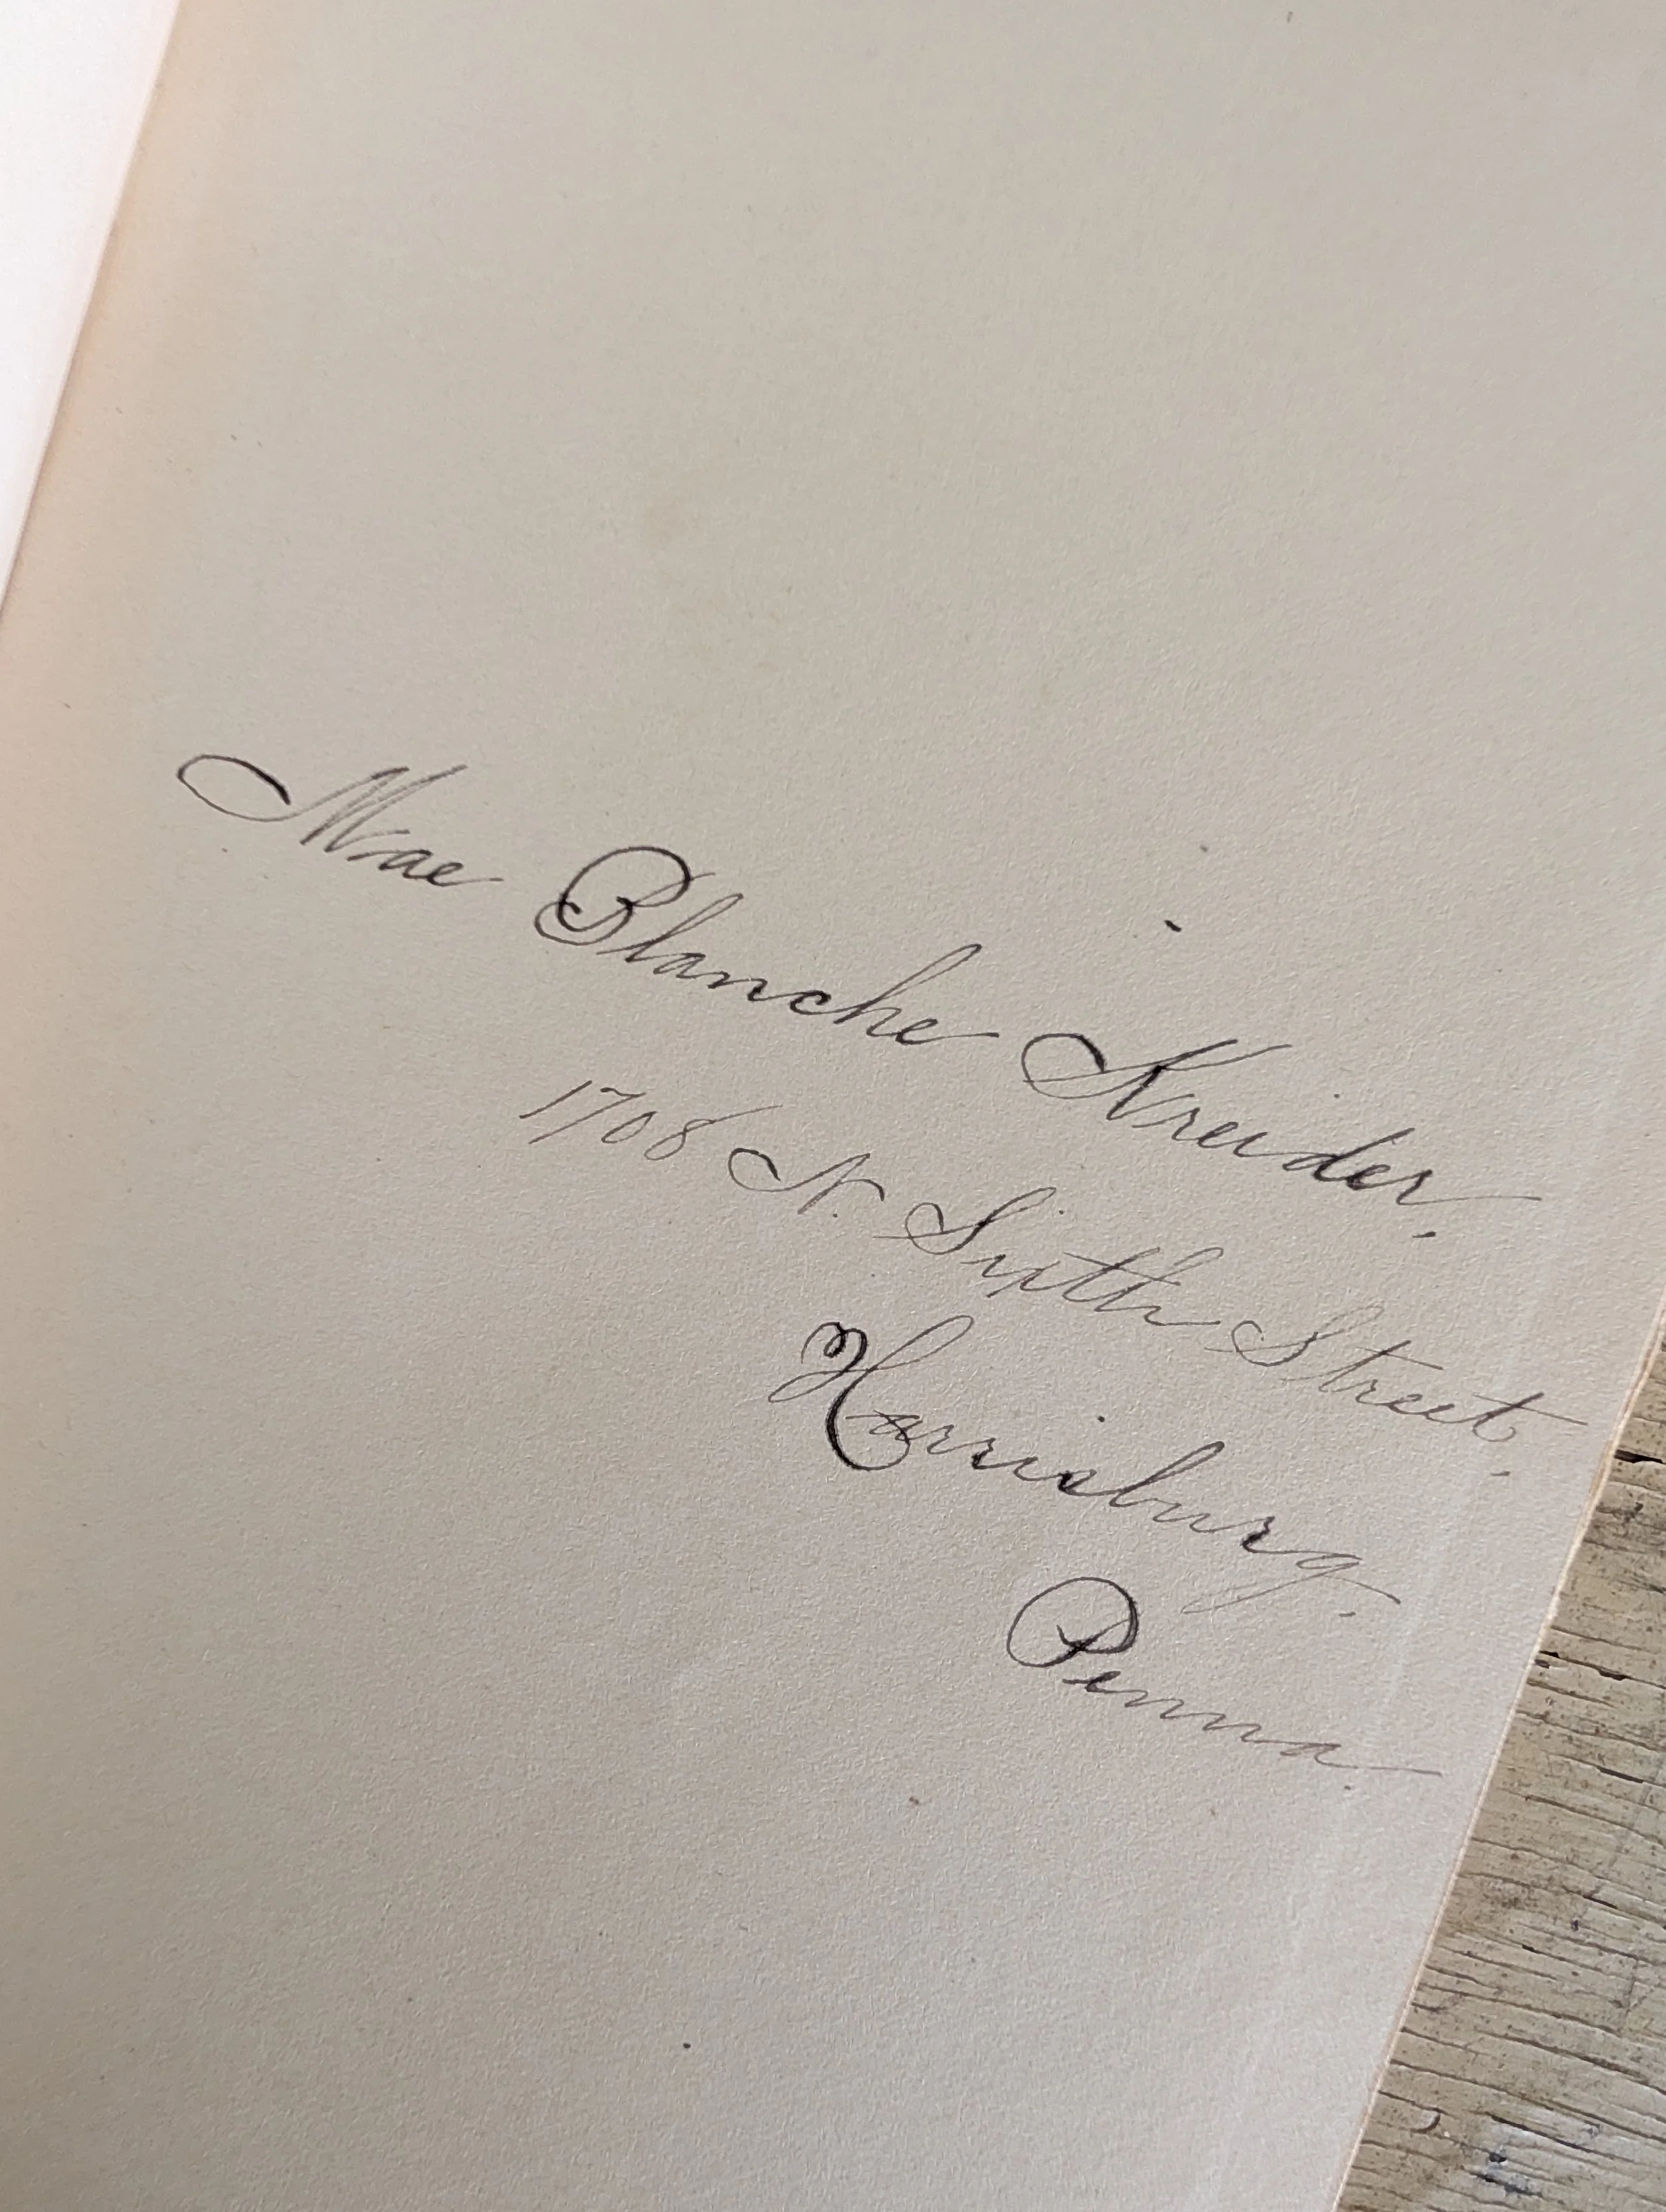 Mae Blanche Kreider.
1708 N. Sixth Street.
Harrisburg.
Penna.